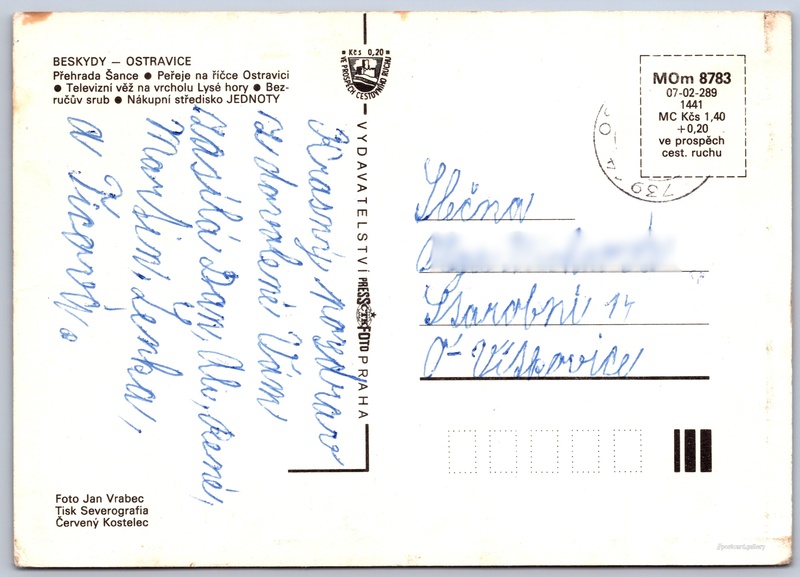 BESKYDY — OSTRAVICE
Přehrada Šance ● Peřeje na říčce Ostravici
● Televizní věž na vrcholu Lysé hory ● Bez-
ručův srub ● Nákupní středisko JEDNOTY
Kčs 0,20
VE PROSPĚCH CESTOVNÍHO RUCHU
VYDAVATELSTVÍ PRESSFOTO PRAHA
MOm 8783
07-02-289
1441
MC Kčs 1,40
+0,20
ve prospěch
cest. ruchu
739
Krásný pozdrav
z dovolené Vám
zasílá Dan, Ali, René,
Martin, Lenka,
a
Slečna
14
O-Vítkovice
Foto Jan Vrabec
Tisk Severografia
Červený Kostelec
//postcard.gallery